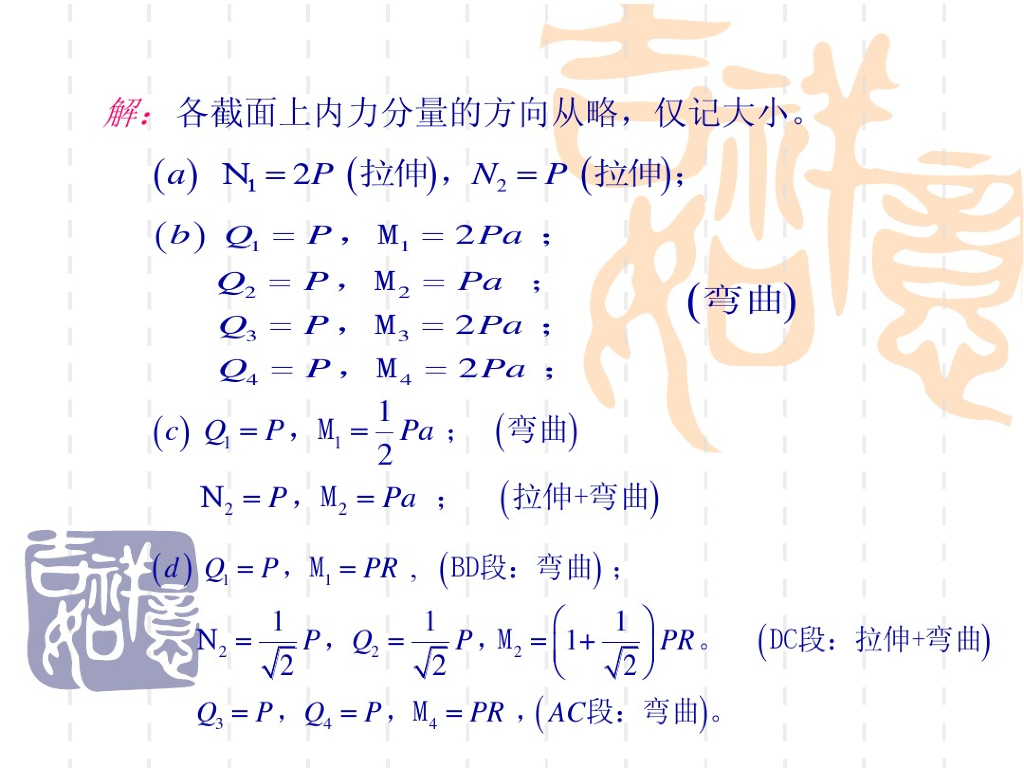 解：各截面上内力分量的方向从略，仅记大小。
(a) N₁ = 2P (拉伸)，N₂ = P (拉伸)；
(b) Q₁ = P，M₁ = 2Pa ；
Q₂ = P，M₂ = Pa ；
(弯曲)
Q₃ = P，M₃ = 2Pa ；
Q₄ = P，M₄ = 2Pa ；
(c) Q₁ = P，M₁ = 1/2 Pa ； (弯曲)
N₂ = P，M₂ = Pa ； (拉伸+弯曲)
(d) Q₁ = P，M₁ = PR , (BD段：弯曲) ；
N₂ = 1/√2 P，Q₂ = 1/√2 P，M₂ = (1+ 1/√2) PR。 (DC段：拉伸+弯曲)
Q₃ = P，Q₄ = P，M₄ = PR ，(AC段：弯曲)。
吉祥如意
吉祥如意